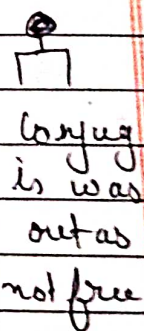 Conjug
is was
out as
not free